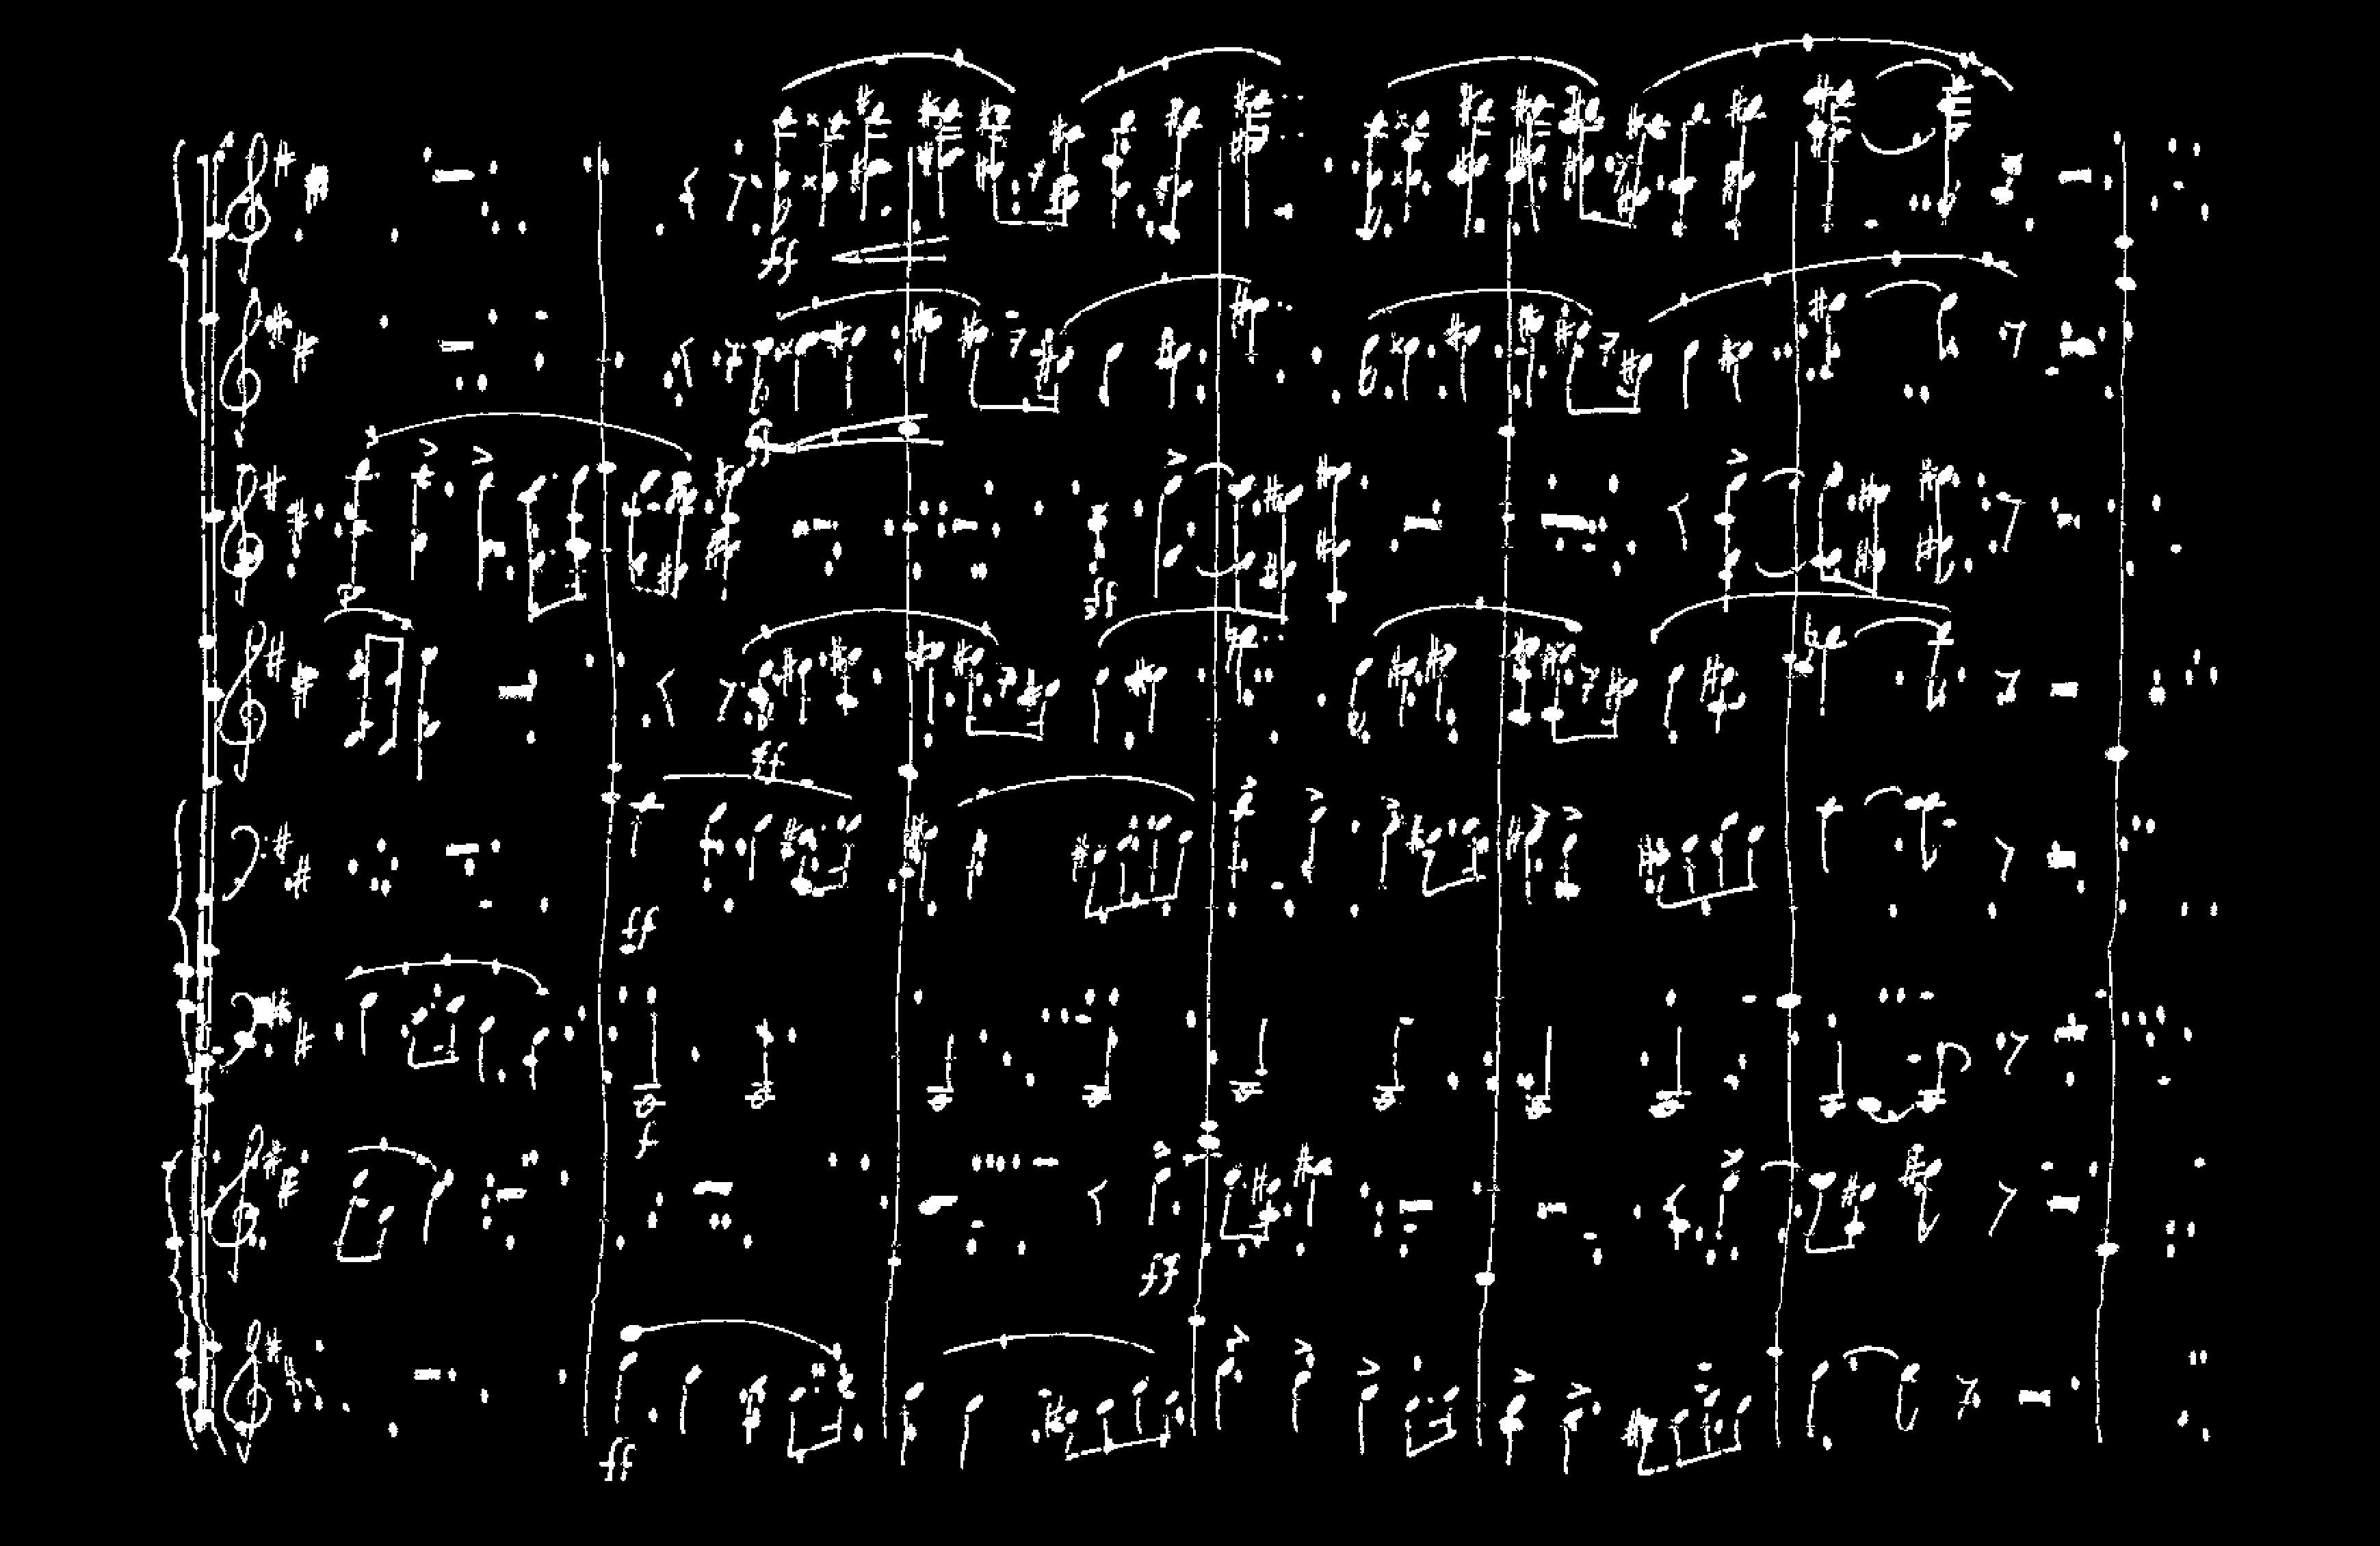 ff
ff
ff
ff
ff
f
ff
ff